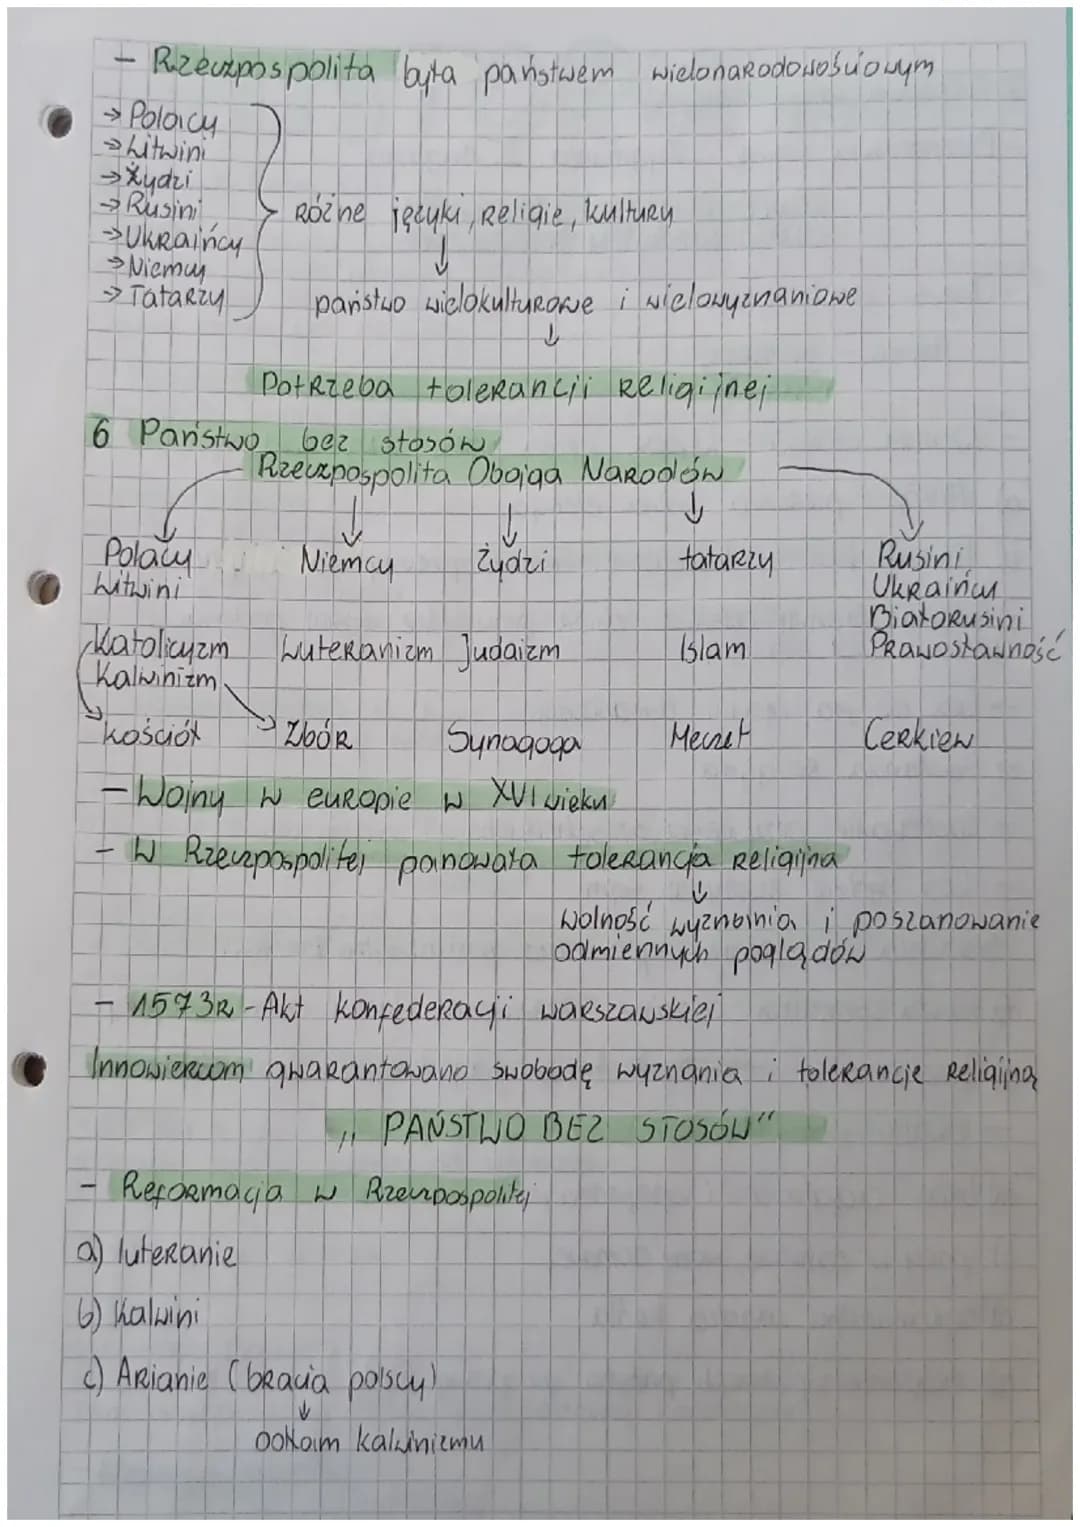 - Rzeczpospolita była państwem wielonarodowościowym
→ Polacy
→ Litwini
→ Żydzi
→ Rusini
→ Ukraińcy
→ Niemcy
→ Tatarzy
Różne języki, religie, kultury
↓
państwo wielokulturowe i wielowyznaniowe
↓
Potrzeba tolerancji religijnej
6 Państwo bez stosów
Rzeczpospolita Obojga Narodów
Polacy Niemcy Żydzi tatarzy Rusini
Litwini Ukraińcy
Białorusini
Katolicyzm Luteranizm Judaizm Islam Prawosławność
Kalwinizm
kościół Zbór Synagoga Meczet Cerkiew
- Wojny w europie w XVI wieku
- W Rzeczpospolitej panowała tolerancja religijna
↓
wolność wyznania i poszanowanie
odmiennych poglądów
- 1573r - Akt konfederacji warszawskiej
Innowiercom gwarantowano swobodę wyznania i tolerancje religijną
„ PAŃSTWO BEZ STOSÓW"
- Reformacja w Rzeczpospolitej
a) luteranie
b) Kalwini
c) Arianie (bracia polscy)
↓
odłam kalwinizmu